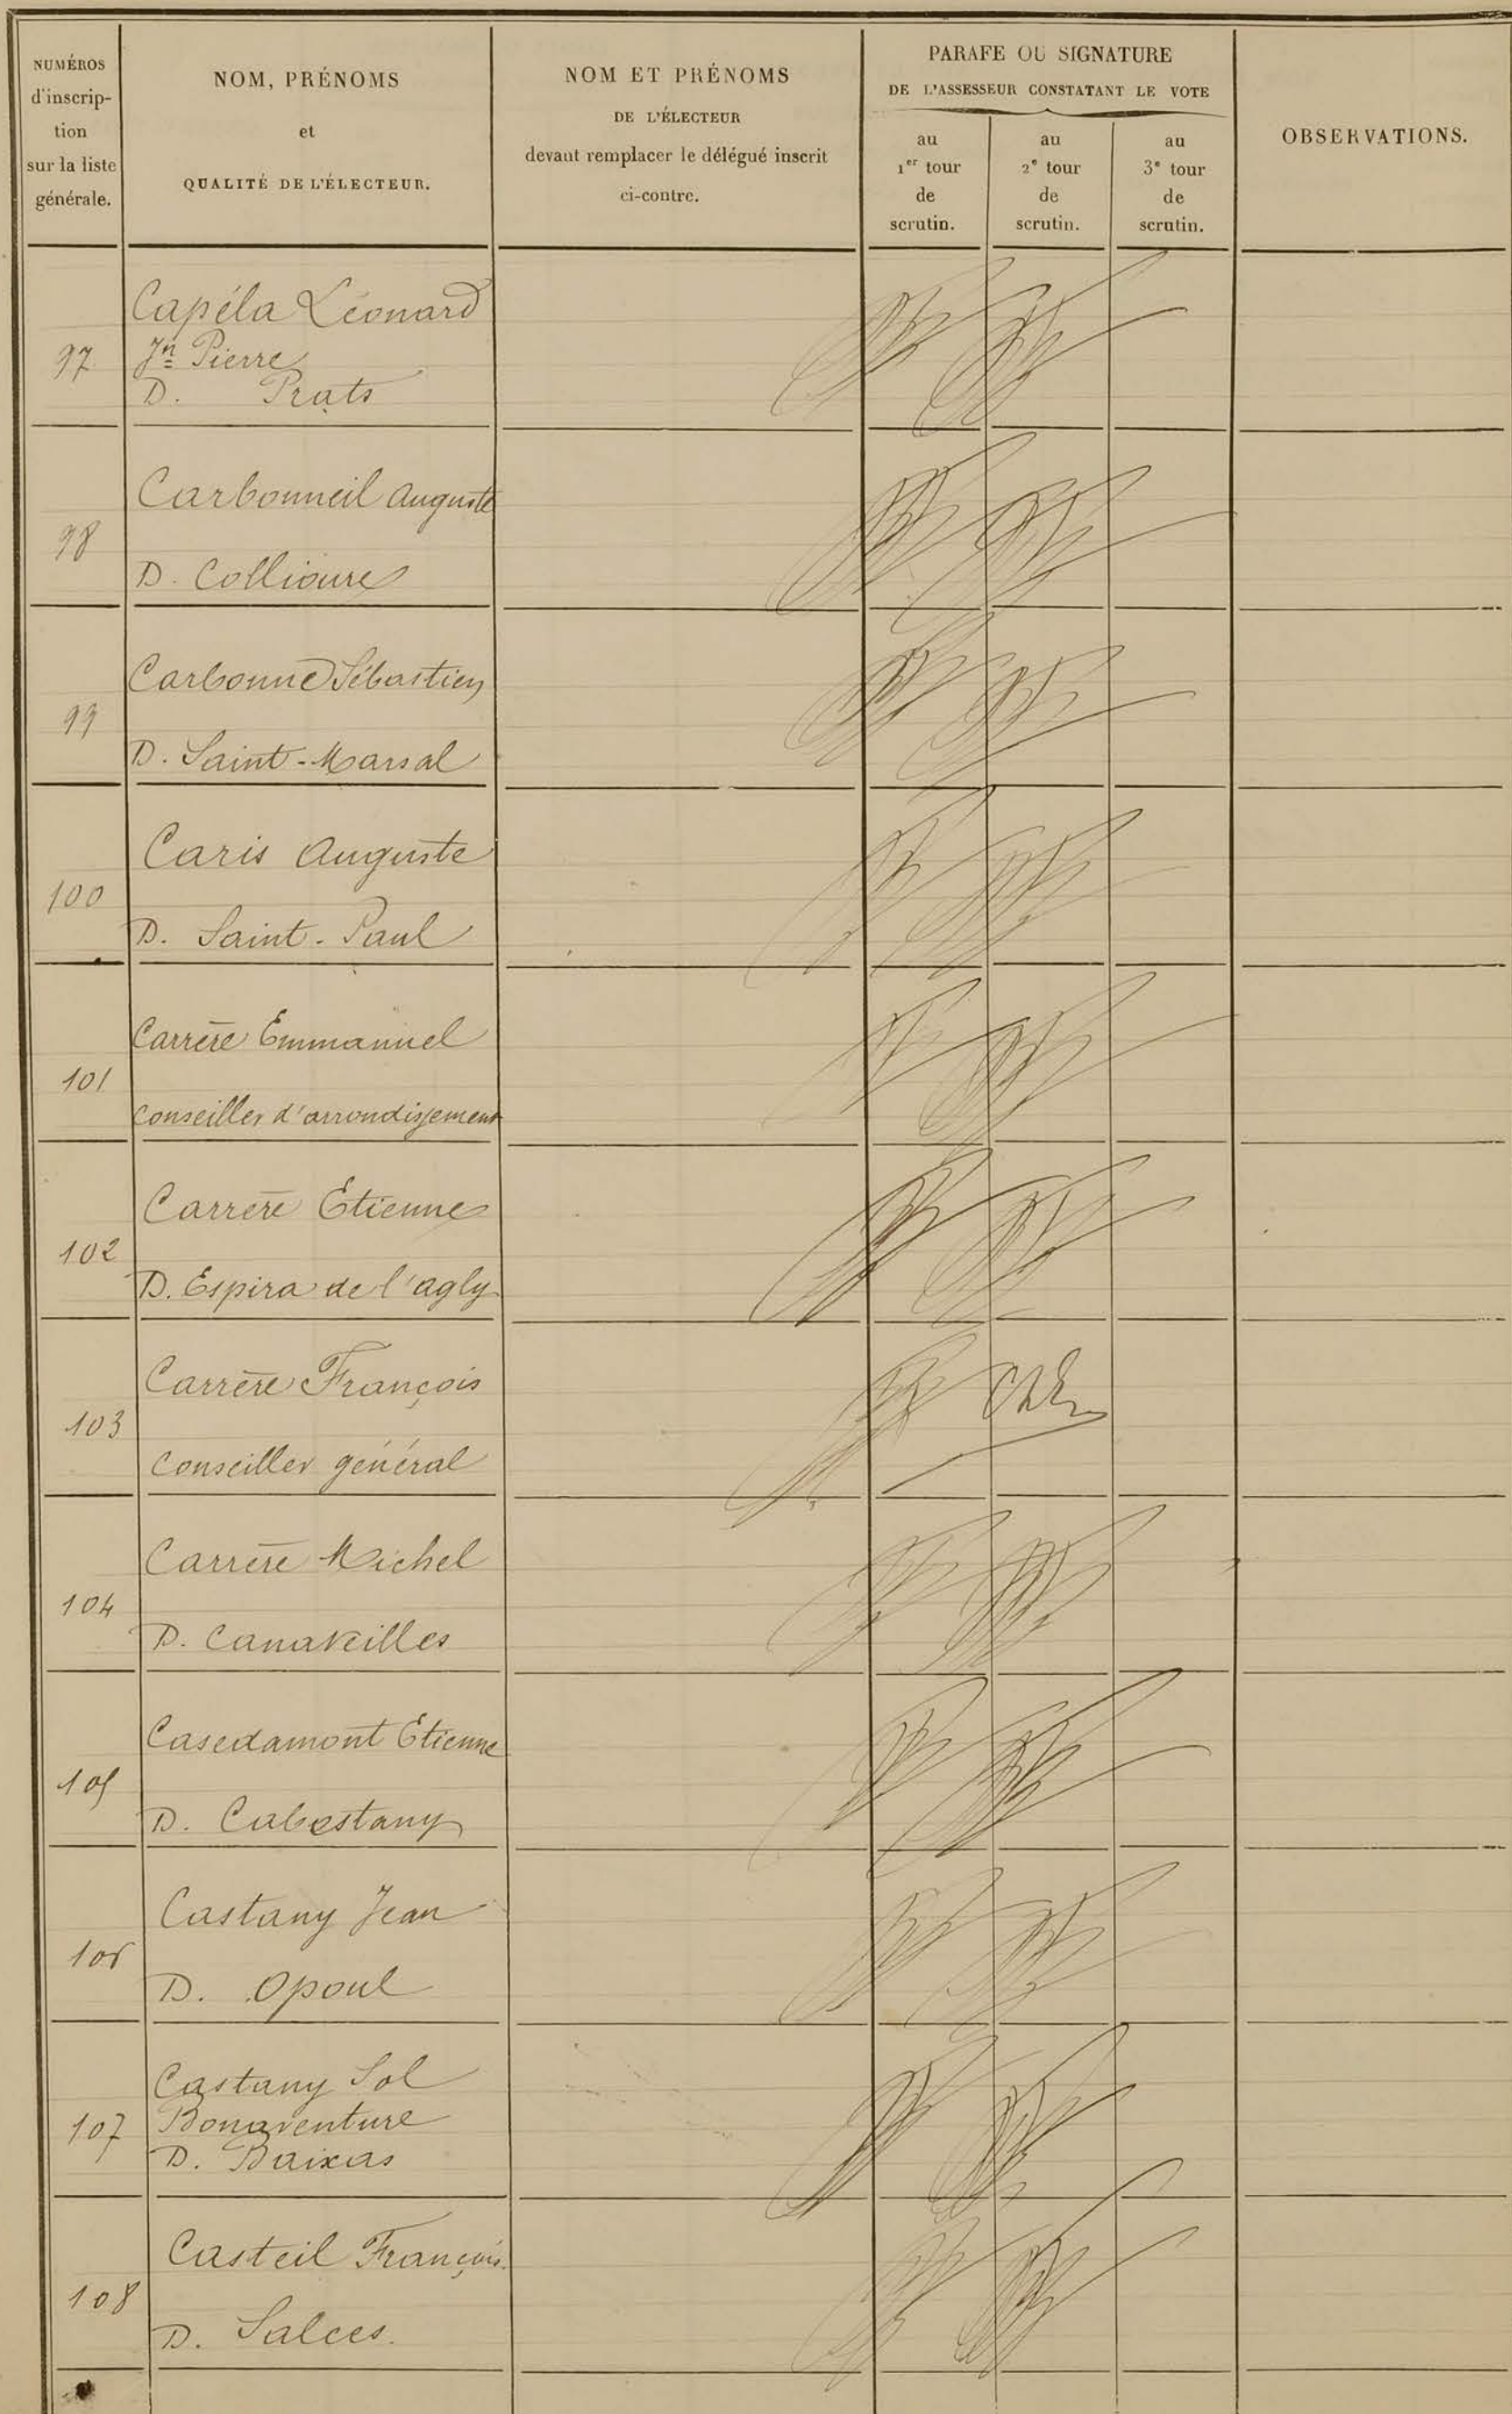 NUMÉROS
d'inscrip-
tion
sur la liste
générale.
NOM, PRÉNOMS
et
QUALITÉ DE L'ÉLECTEUR.
NOM ET PRÉNOMS
DE L'ÉLECTEUR
devant remplacer le délégué inscrit
ci-contre.
PARAFE OU SIGNATURE
DE L'ASSESSEUR CONSTATANT LE VOTE
au
1er tour
de
scrutin.
au
2e tour
de
scrutin.
au
3e tour
de
scrutin.
OBSERVATIONS.
97
Capéla Léonard
Jn Pierre
D. Prats
98
Carbonneil Auguste
D. Collioure
99
Carbonne Sébastien
D. Saint-Marsal
100
Caris Auguste
D. Saint-Paul
101
Carrère Emmanuel
Conseiller d'arrondissement
102
Carrère Etienne
D. Espira de l'agly
103
Carrère François
Conseiller général
104
Carrère Michel
D. Canaveilles
105
Casedamont Etienne
D. Cabestany
106
Castany Jean
D. Opoul
107
Castany Sol
Bonaventure
D. Baixas
108
Casteil François
D. Salces.